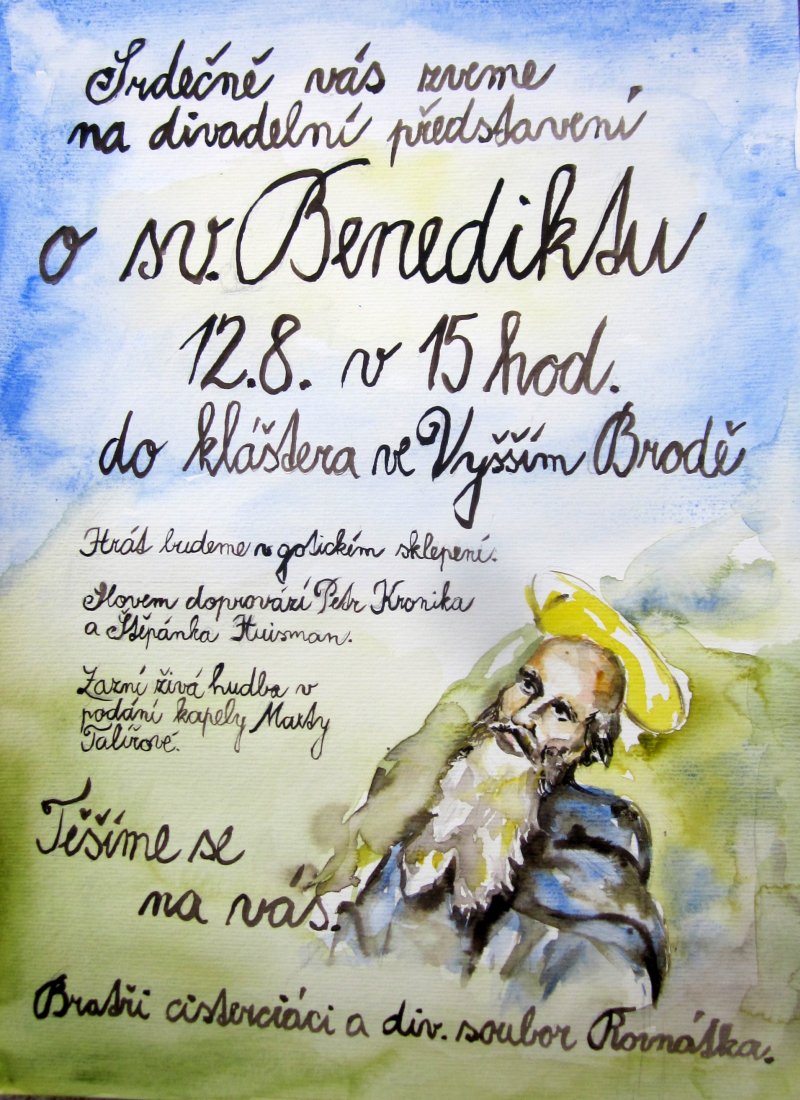 Srdečně vás zveme
na divadelní představení
o sv. Benediktu
12.8. v 15 hod.
do kláštera ve Vyšším Brodě
Hrát budeme v gotickém sklepení.
Slovem doprovází Petr Kronika
a Štěpánka Huisman.
Zazní živá hudba v
podání kapely Marty
Talířové.
Těšíme se
na vás.
Bratři cisterciáci a div. soubor Rovnátka.